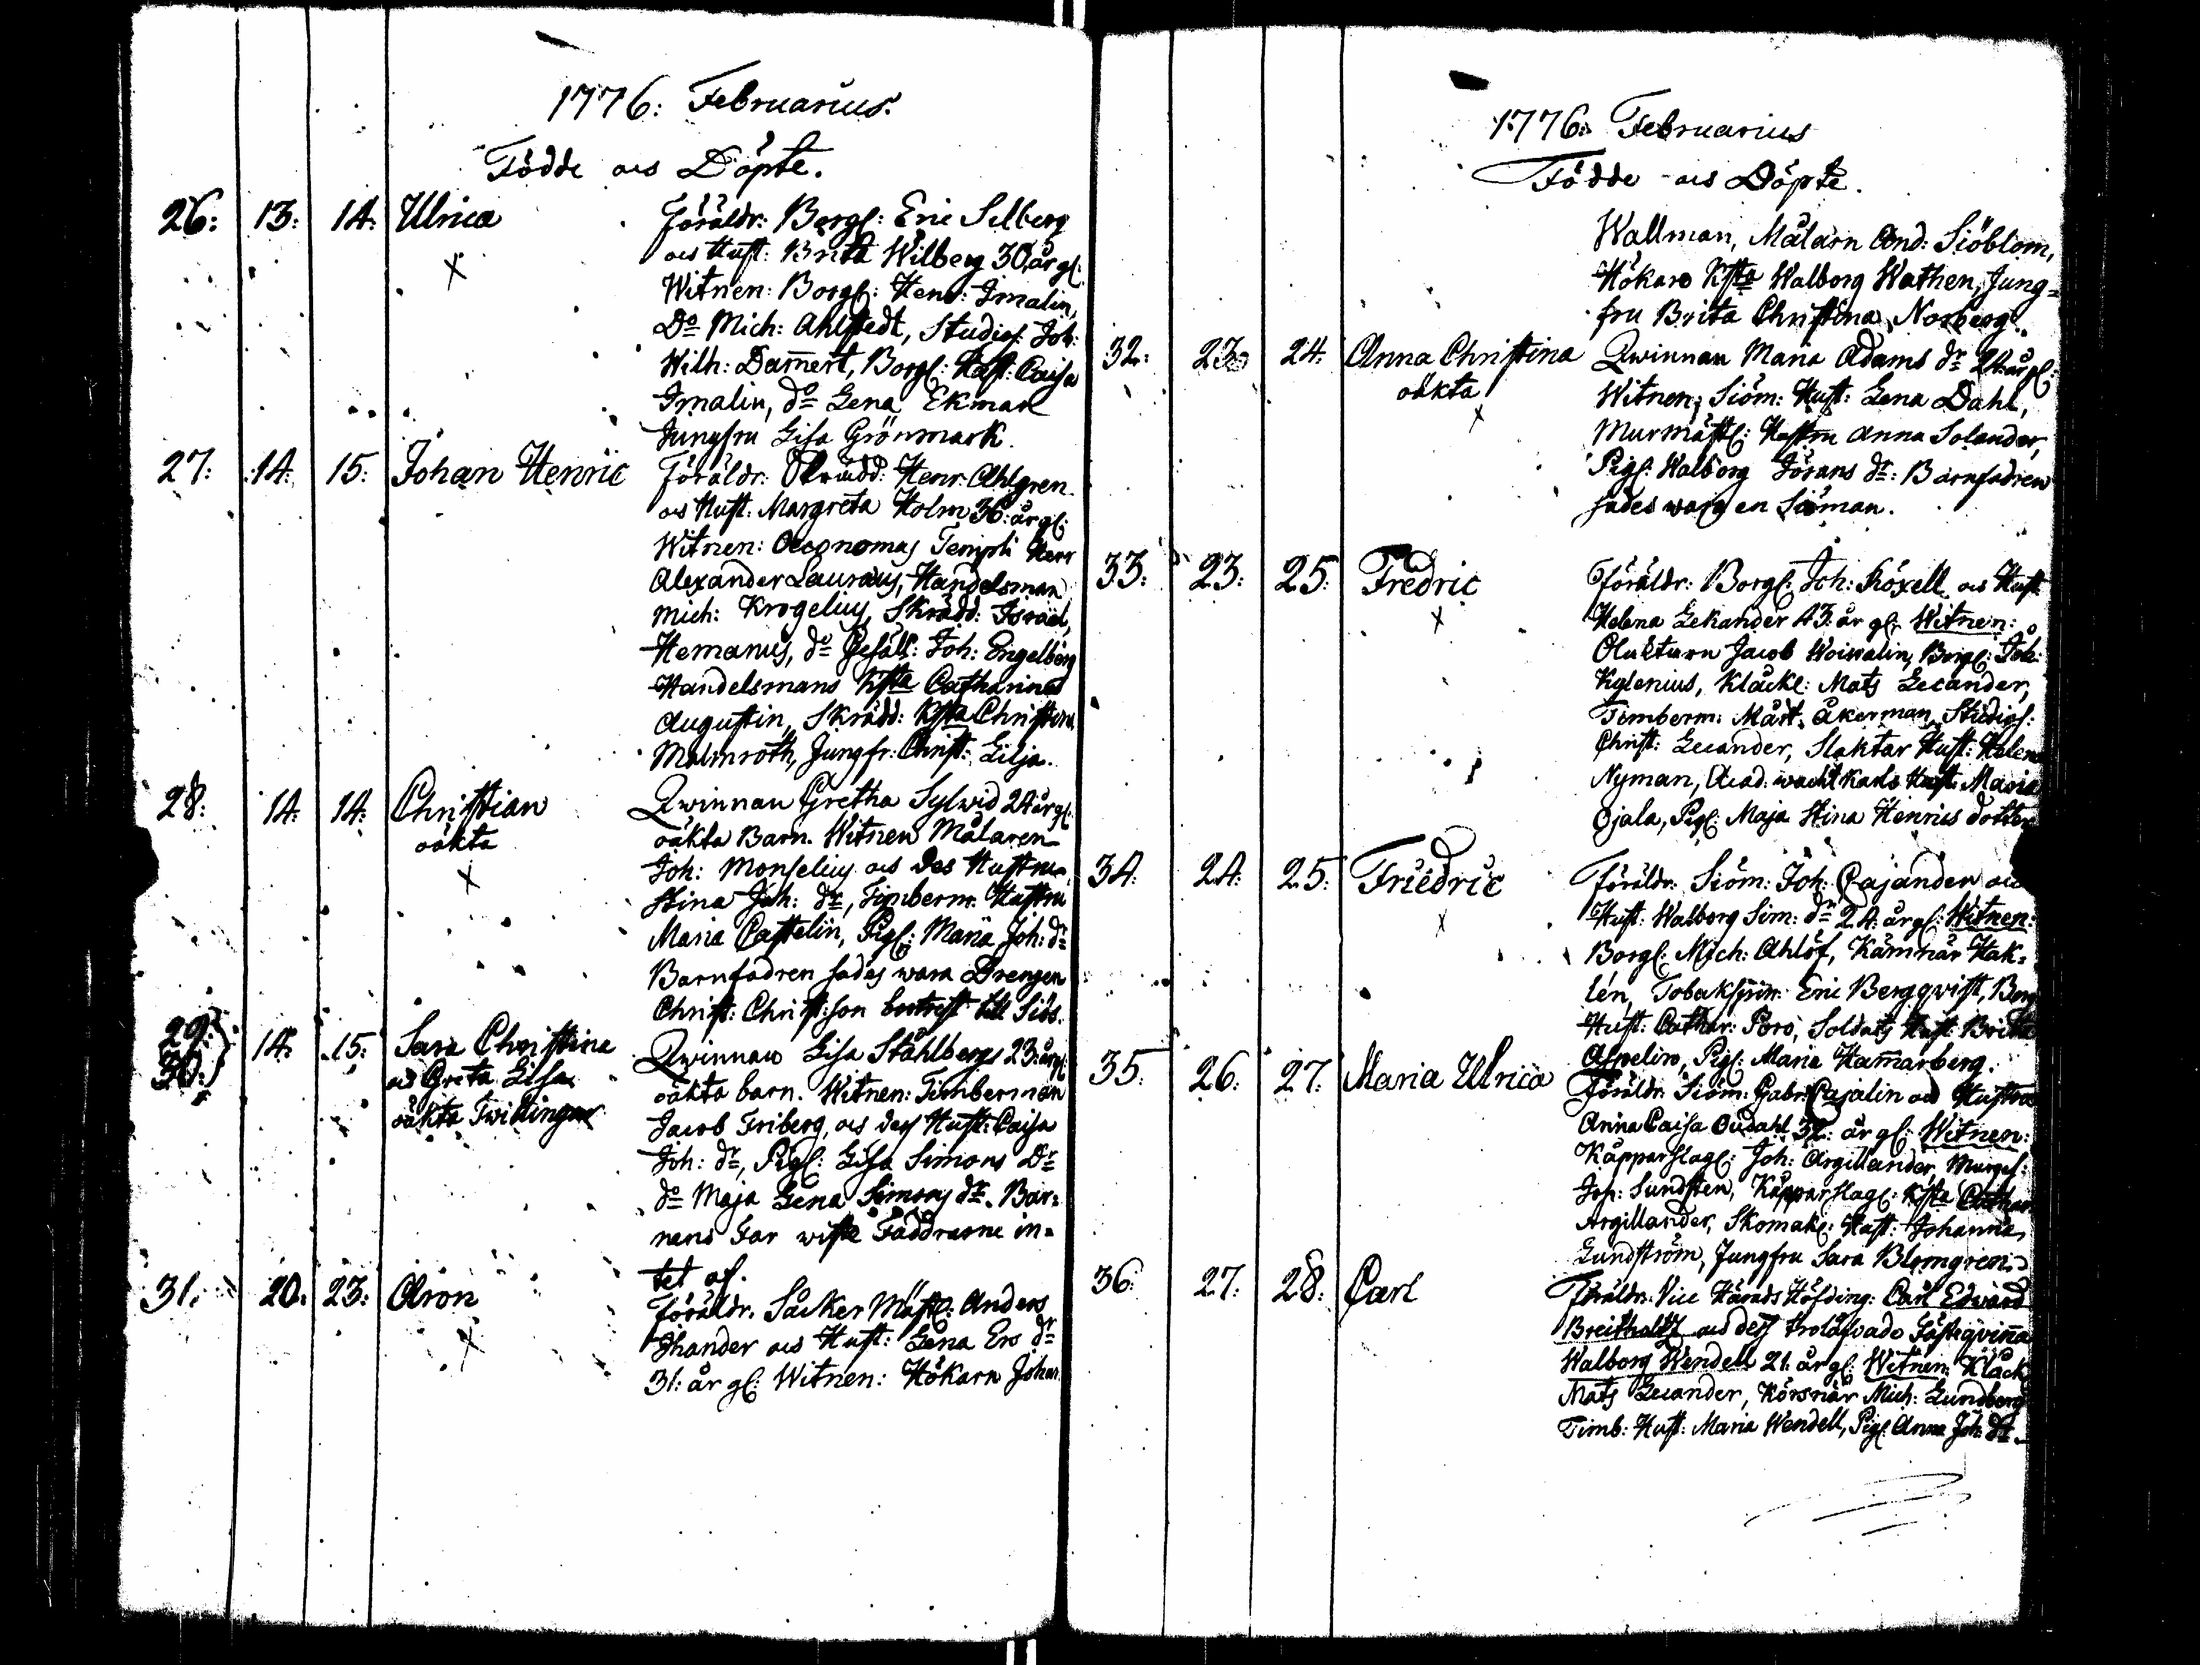 1776: Februarius.
Födde och Döpte.
26: 13: 14: Ulrica Föräldr: Borgl: Eric Selberg
och Hust: Brita Wilberg 30 år gl:
Witnen: Borgl: Henr: Imalin,
Do Mich: Ahlstedt, Studios: Joh:
Wilh: Dam̄ert, Borgl: Hust: Caisa
Imalin, do Lena Ekman
Jungfru Lisa Grönmark.
27: 14: 15: Johan Henric Föräldr: Henr: Ahlgren
och Hust: Margreta Holm 36: år gl:
Witnen: Oeconomus Templi Herr
Alexander Lauræus, Handelsman
Mich: Krogelius, Skrädd: Israel
Hemanus, do Gesäll: Joh: Engelberg
Handelsmans K:sta Catharina
Augustin, Skrädd: K:sta Christina
Malmroth, Jungfr: Christ: Lilja.
28: 14: 14: Christian Qwinnan Gretha Sylwid 24 år gl:
oäkta oäkta Barn. Witnen Målaren
Joh: Monselius och des Hustru
Stina Joh: dr, Timberm: Hustru
Maria Castelin, Pigl: Maria Joh: dr
Barnfadren sades wara Drengen
Christ: Christ:son bortrest till Siös.
29: 30: 14: 15: Sara Christina Qwinnan Lisa Ståhlberg 23: år gl:
och Greta Lisa oäkta barn. Witnen: Timberman
oäkta Twillingar Jacob Friberg, och des Hust: Caisa
Joh: dr, Pigl: Lisa Simons Dr
do Maja Lena Simons dr. Bar=
nens Far wiste Faddrarne in=
tet af.
31. 20: 23: Aron Föräldr. Såcker Mäst: Anders
Thander och Hust: Lena Ers dr
31: år gl: Witnen: Hökarn Johan
1776: Februarius
Födde och Döpte.
Wallman, Målarn And: Siöblom,
Hökare K:sta Walborg Wathen, Jung=
fru Brita Christina Norberg.
32: 23: 24: Anna Christina Qwinnan Maria Adams dr 24: år gl:
oäkta Witnen: Siöm: Hust: Lena Dahl,
Murmästl: Hustru Anna Solander,
Pigl: Walborg Jörans dr: Barnfadren
sades wara en Siöman.
33: 23: 25: Fredric Föräldr: Borgl: Joh: Röxell och Hust
Helena Lekander 43: år gl: Witnen:
Jacob Woiwalin, Borgl: Joh:
Kylenius, Klåckl: Mats Lecander,
Timberm: Mårt: Åkerman, Studios:
Christ: Lecander, Slaktar Hust: Helena
Nyman, Acad. wacht Karls Hust: Maria
Ojala, Pigl: Maja Stina Henrics dotter
34: 24: 25: Friedric Föräldr: Siöm: Joh: Cajander och
Hust: Walborg Sim: dr 24: år gl: Witnen:
Borgl: Mich: Ahlöf, Kämnär Hak=
lén, Eric Bergqvist, Borg
Hust: Cathar: Poro, Soldats Hust: Brita
Aspelin, Pigl: Maria Ham̄arberg.
35: 26: 27: Maria Ulrica Föräldr: Siöm: Gabr: Cajalin och Hustru
Anna Caisa Oudahl 32: år gl: Witnen:
Kåpparslagl: Joh: Argillander, Murgel:
Joh: Sundsten, Kåpparslagl: K:sta Cathar:
Argillander, Skomakl: Hust: Johanna
Lundström, Jungfru Sara Blomgren.
36: 27: 28: Carl Föräldr: Vice Härads Höfding: Carl Edvard
Breitholtz och dess trolåfvade Fästeqvinna
Walborg Wendell 21: år gl: Witnen: Klåck
Mats Lecander, Körsnär Mich: Lundberg
Timb: Hust: Maria Wendell, Pigl: Anna Joh: dr.